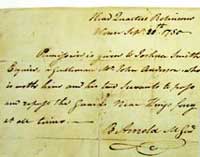 Head Quarters Robinsons
House Sepr. 20th 1780
Permission is given to Joshua Smith
Esquire, a gentleman Mr John Anderson who
is with him and his two Servants to pass
and repass the Guards Near Kings ferry
at all times
B Arnold M Genl